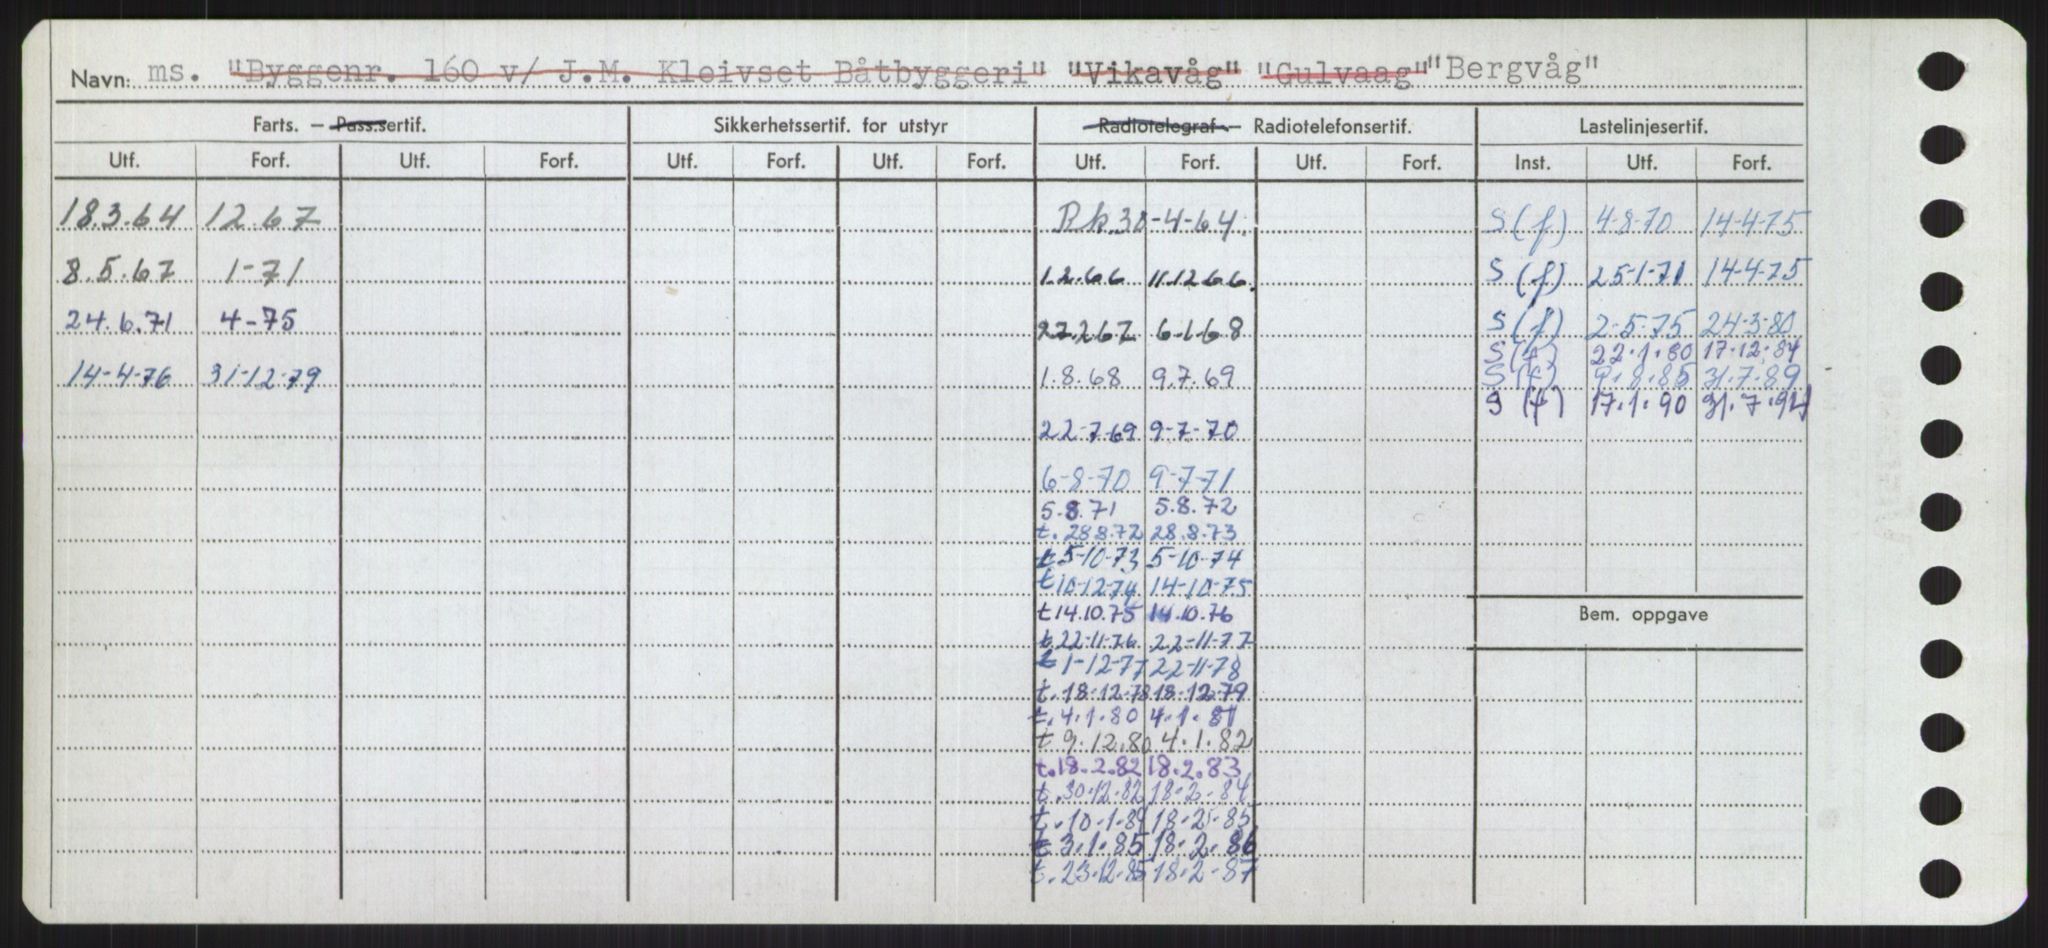 Navn: ms. "Byggenr. 160 v/ J.M. Kleivset Båtbyggeri" "Vikavåg" "Gulvaag" "Bergvåg"
Farts. — Pass.sertif. Sikkerhetssertif. for utstyr Radiotelegraf — Radiotelefonsertif. Lastelinjesertif.
Utf. Forf. Utf. Forf. Utf. Forf. Utf. Forf. Utf. Forf. Utf. Forf. Inst. Utf. Forf.
18.3.64 12.67 Bk. 30-4-64. S (f) 4-8-70 14-4-75
8.5.67 1-71 1.2.66 11.12.66. S (f) 25-1-71 14-4-75
24.6.71 4-75 27.2.67 6.1.68 S (f) 2-5-75 24-3-80
S (f) 22.1.80 17.12.84
14-4-76 31-12-79 1.8.68 9.7.69 S (f) 9.8.85 31.7.89
S (f) 17.1.90 31.7.94
22-7-69 9-7-70
6-8-70 9-7-71
5.8.71 5.8.72
t. 28.8.72 28.8.73
t 5-10-73 5-10-74
t 10-12-74 14-10-75
t 14.10.75 14.10.76
Bem. oppgave
t 22-11-76 22-11-77
t 1-12-77 22-11-78
t. 18.12.78 18.12.79
t. 4.1.80 4.1.81
t 9.12.80 4.1.82
t. 18.2.82 18.2.83
t. 30.12.82 18.2.84
t. 10.1.84 18.2.85
t. 3.1.85 18.2.86
t. 23.12.85 18.2-87